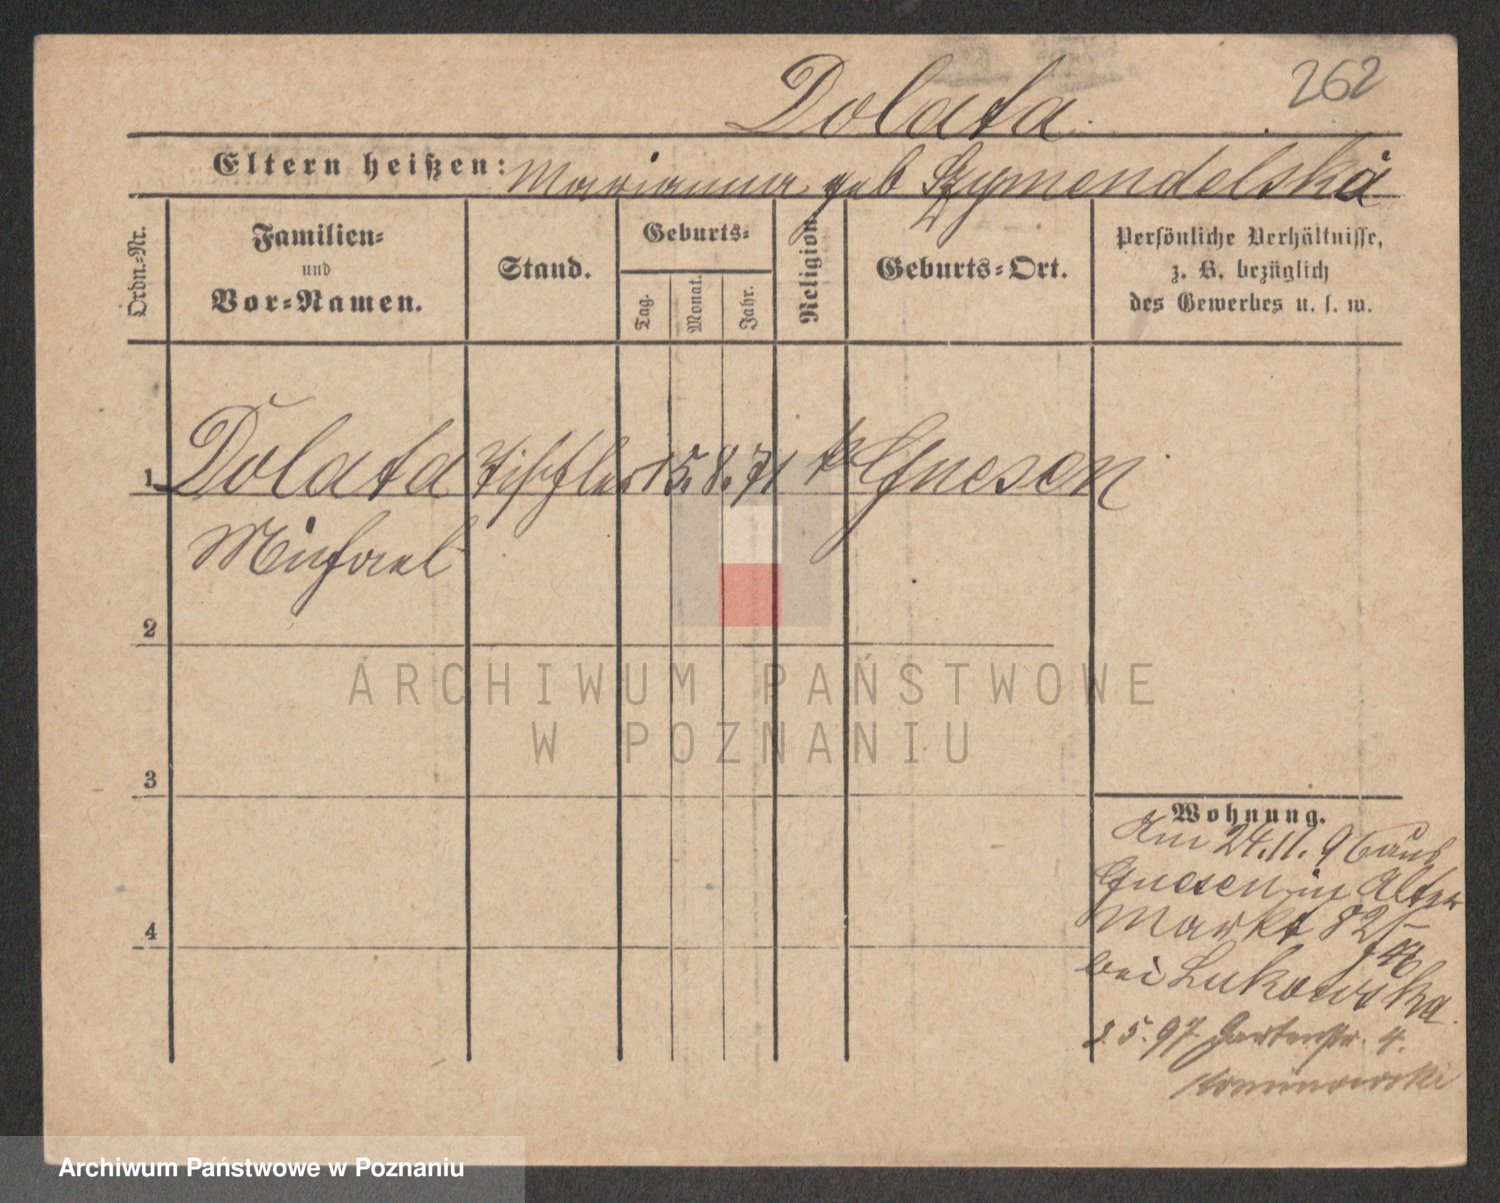 262
Dolata
Eltern heißen: Marianna geb Szymendelska
Ordn.-Nr.
Familien-
und
Vor-Namen.
Stand.
Geburts-
Tag.
Monat.
Jahr.
Religion.
Geburts-Ort.
Persönliche Verhältnisse,
z. B. bezüglich
des Gewerbes u. s. w.
1 Dolata Tischler 15. 8. 71 k Gnesen
Michael
2
3
4
Wohnung.
Am 24.11.96 aus
Gnesen in Alter
Markt 82
bei Lukowska
5.97 Gartenstr. 4.
ARCHIWUM PAŃSTWOWE
W POZNANIU
Archiwum Państwowe w Poznaniu